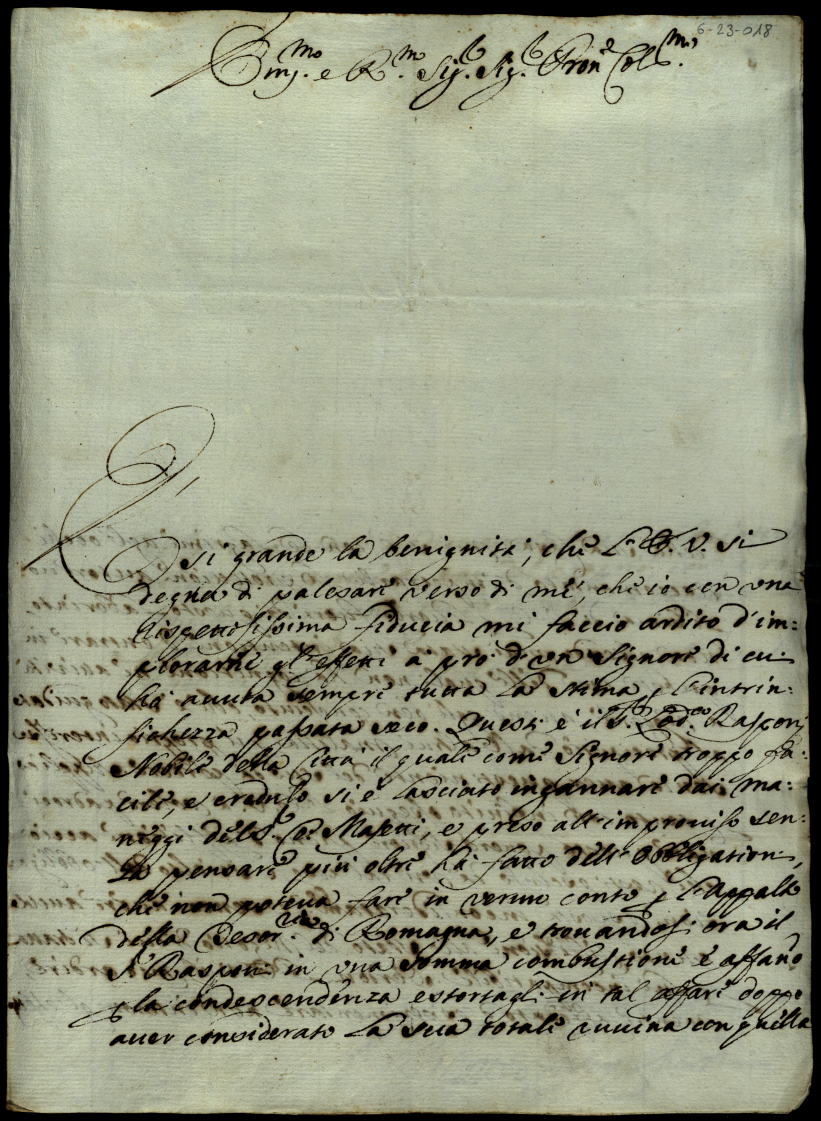 6-23-018
Emo. e Rmo. Sig. Sig. Pron. Colmo.
È si grande la benignità, che l'E. V. si
degna di palesare verso di me, che io con una
rispettosissima fiducia mi faccio ardito d'im:
plorarne gl'effetti à prò d'un Signore di cui
hà avuta sempre tutta la stima, e l'intrin:
sichezza passata seco. Questi è il S. Lod.co Rasponi
Nobile della Città il quale come Signore troppo fa:
cile, e credulo si è lasciato ingannare dai ma:
neggi del S. Masetti, e preso all'improviso sen:
za pensare più oltre hà fatto dell'Obbligationi,
che non poteva fare in verun conto p l'Appalto
della Tesor.ria di Romagna, e trovandosi ora il
S. Rasponi in una somma combustione e affano
p la condescendenza estortagli in tal affare doppo
aver considerato la sua totale ruvina con quella